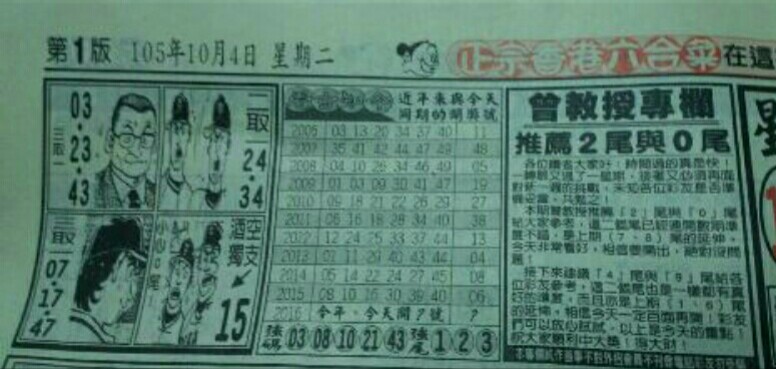 第1版 105年10月4日 星期二
正宗香港六合彩 在這
03·23·43
三取一
二取
24·34
三取
07·17·47
小心0尾
空支
酒獨
15
近年來與今天
同期的開獎號
2006 03 13 20 34 37 40 11
2007 35 41 42 44 47 49 48
2008 04 10 26 34 46 49 05
2009 01 03 09 30 41 47 19
2010 09 18 21 22 26 29 27
2011 06 16 18 28 34 40 38
2012 12 24 25 33 37 44 13
2013 02 11 29 40 43 44 04
2014 05 14 22 24 27 45 08
2015 08 10 16 30 39 40 06
2016 今年、今天開?號 ?
強碼 03 08 10 21 43 強尾 1 2 3
曾教授專欄
推薦2尾與0尾
各位讀者大家好!時間過的真是快!
轉眼又過了一星期,這著又必須再面
對新一週的挑戰,未知各位彩友是否準
備妥當,共勉之!
本期曾教授推薦「2」尾與「0」尾
給大家參考,這二個尾已經連開數期準
度不錯,是上期(7、8)尾的延伸,
今天非常看好,相信要開出,絕對沒問
題!
接下來建議「4」尾與「9」尾給各
位彩友參考,這二個尾也是一樣都有真
好的準度,而且亦是上期(1、6)尾
的延伸,相信今天一定百開再開!彩友
們可以放心試試,以上是今天的重點!
祝大家順利中大獎!得大財!